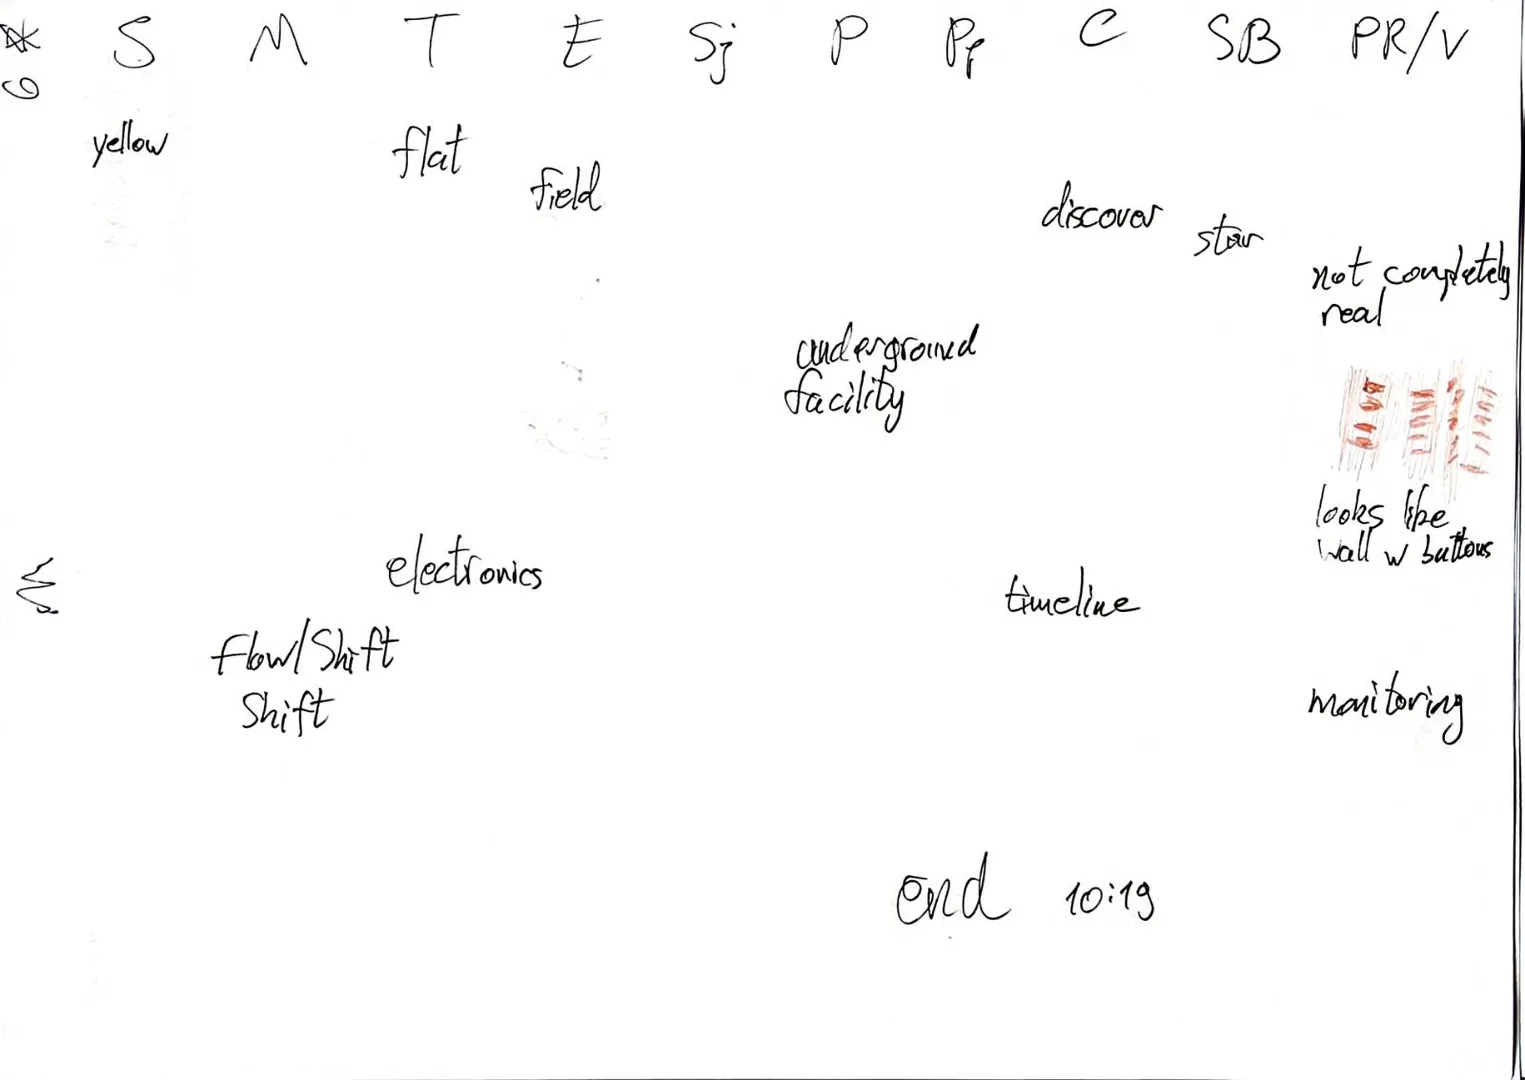 S M T E Sj P Pp C SB PR/V
yellow
flat
field
discover
star
not completely
real
underground
facility
looks like
wall w buttons
electronics
timeline
Flow/Shift
Shift
monitoring
end 10:19